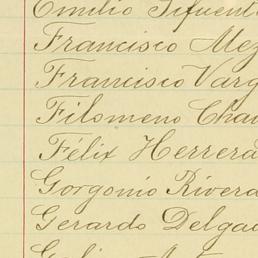 Emilio Sifuent
Francisco Mez
Francisco Varg
Filomeno Chav
Félix Herrera
Gorgonio Rivera
Gerardo Delgad